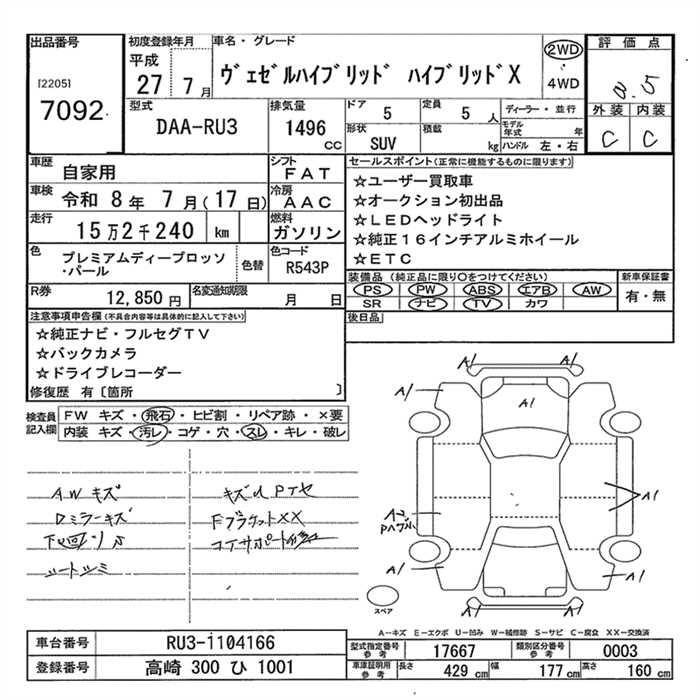 出品番号
[2205]
7092
初度登録年月
平成
27 7 月
車名・グレード
ヴェゼルハイブリッド ハイブリッドX
2WD
・
4WD
評価点
外装 内装
C C
型式
DAA-RU3
排気量
1496
CC
ドア
5
定員
5 人
形状
SUV
積載
kg
ディーラー・並行
モデル年式 年
ハンドル 左・右
車歴
自家用
シフト
FAT
車検
令和 8 年 7 月 ( 17 日)
冷房
AAC
走行
15万2千240 km
燃料
ガソリン
色
プレミアムディープロッソ
・パール
色替
色コード
R543P
R券
12,850 円
名変通知期限
月 日
セールスポイント(正常に機能するものに限ります)
☆ユーザー買取車
☆オークション初出品
☆LEDヘッドライト
☆純正16インチアルミホイール
☆ETC
装備品 (純正品に限り○をつけてください)
PS PW ABS エアB AW
SR ナビ TV カワ
新車保証書
有・無
後日品
注意事項申告欄(不具合内容等は具体的に記入して下さい)
☆純正ナビ・フルセグTV
☆バックカメラ
☆ドライブレコーダー
修復歴 有〔箇所 〕
検査員
記入欄
FW キズ・飛石・ヒビ割・リペア跡・×要
内装 キズ・汚レ・コゲ・穴・スレ・キレ・破レ
AWキズ
Dミラーキズ
シートシミ
A1 A1
A1 A1
A2 A1
A1 A1
A1
スペア
A－キズ E－エクボ U－凹み W－補修跡 S－サビ C－腐食 XX－交換済
車台番号
RU3-1104166
登録番号
高崎 300 ひ 1001
型式指定番号
参考
17667
類別区分番号
参考
0003
車庫証明用
参考
長さ 429 cm 幅 177 cm 高さ 160 cm